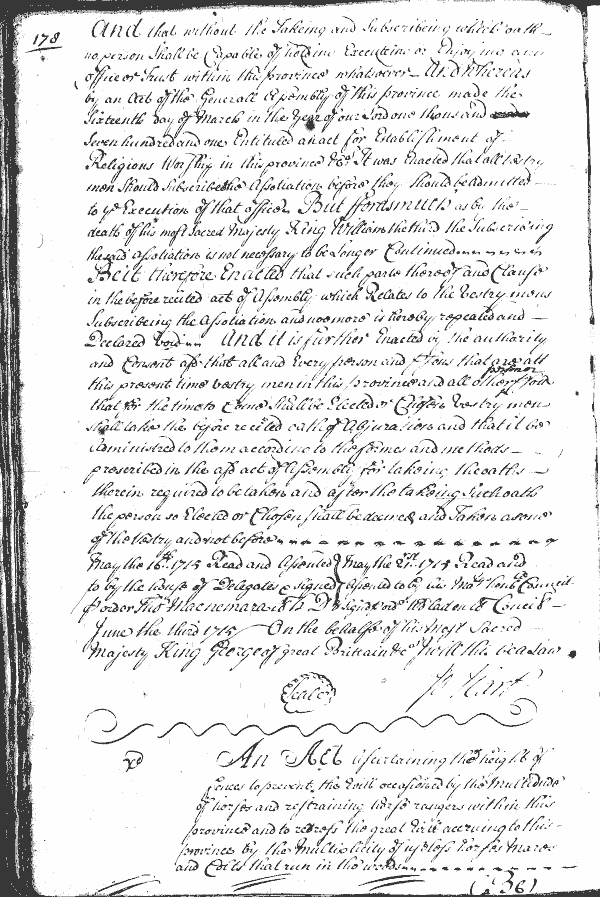 178
And that without the Takeing and Subscribeing which oath
no person Shall be Capable of holding Executing or Enjoying any
office or Trust within this province whatsoever And Whereas
by an Act of the Generall Assembly of this province made the
Sixteenth day of March in the Year of our Lord one thousand
Seven hundred and one Entituled an act for Establishment of
Religious Worship in this province &ca It was Enacted that all Vestry
men Should Subscribe the Assotiation before they Should be admitted
to ye Execution of that office But fforasmuch as by the
death of his most Sacred Majesty King William the third the Subscribing
the said assotiation is not necessary to be Longer Continued
Be it therefore Enacted that such parts thereof and Clause
in the before recited act of Assembly which Relates to the Vestry mens
Subscribeing the Assotiation and noe more is thereby repealed and
Declared Void And it is further Enacted by the authority
and Consent afd that all and Every person and psons that are att
this present time Vestry men in this province and all other person
that for the time to Come Shall be Elected or Chosen Vestry men
shall take the before recited oath of Abjuration and that it be
administred to them according to the formes and methods
prescribed in the afd act of Assembly for takeing the oaths
therein required to be taken and after the takeing Such oath
the person so Elected or Chosen shall be deemed and Taken as one
of the Vestry and not before
May the 16th 1715 Read and Assented May the 21st 1715 Read and
to by the house of Delegates & signed Assented to by his Matys honble Council
p order Tho Macnemara Cl h D signd p ordr Wm Bladen Cl Concil
June the third 1715 On the behalfe of his Most Sacred
Majesty King George of great Brittain &ca I will this be a Law
Jo Hart
Seale
xd
An Act Ascertaining the height of
fences to prevent the Evill occasioned by the Multitude
of horses and restraining horse rangers within this
province and to redress the great Evil accruing to this
province by the Multiplicity of useless horses Mares
and Colts that run in the woods
(36)